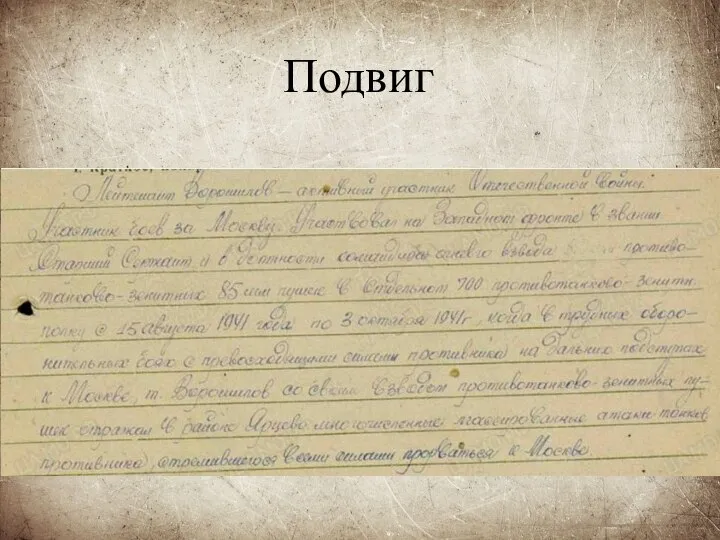 Подвиг
1. Краткое, конкр
Лейтенант Ворошилов – активный участник Отечественной войны.
Участник боев за Москву. Участвовал на Западном фронте в звании
Старший Сержант и в должности командира огневого взвода противо-
танково-зенитных 85 мм пушек в Отдельном 700 противотанково-зенитн.
полку с 15 августа 1941 года по 3 октября 1941 г, когда в трудных оборо-
нительных боях с превосходящими силами противника на дальних подступах
к Москве, т. Ворошилов со своим взводом противотанково-зенитных пу-
шек отражал в районе Ярцево многочисленные массированные атаки танков
противника, стремившегося всеми силами прорваться к Москве.